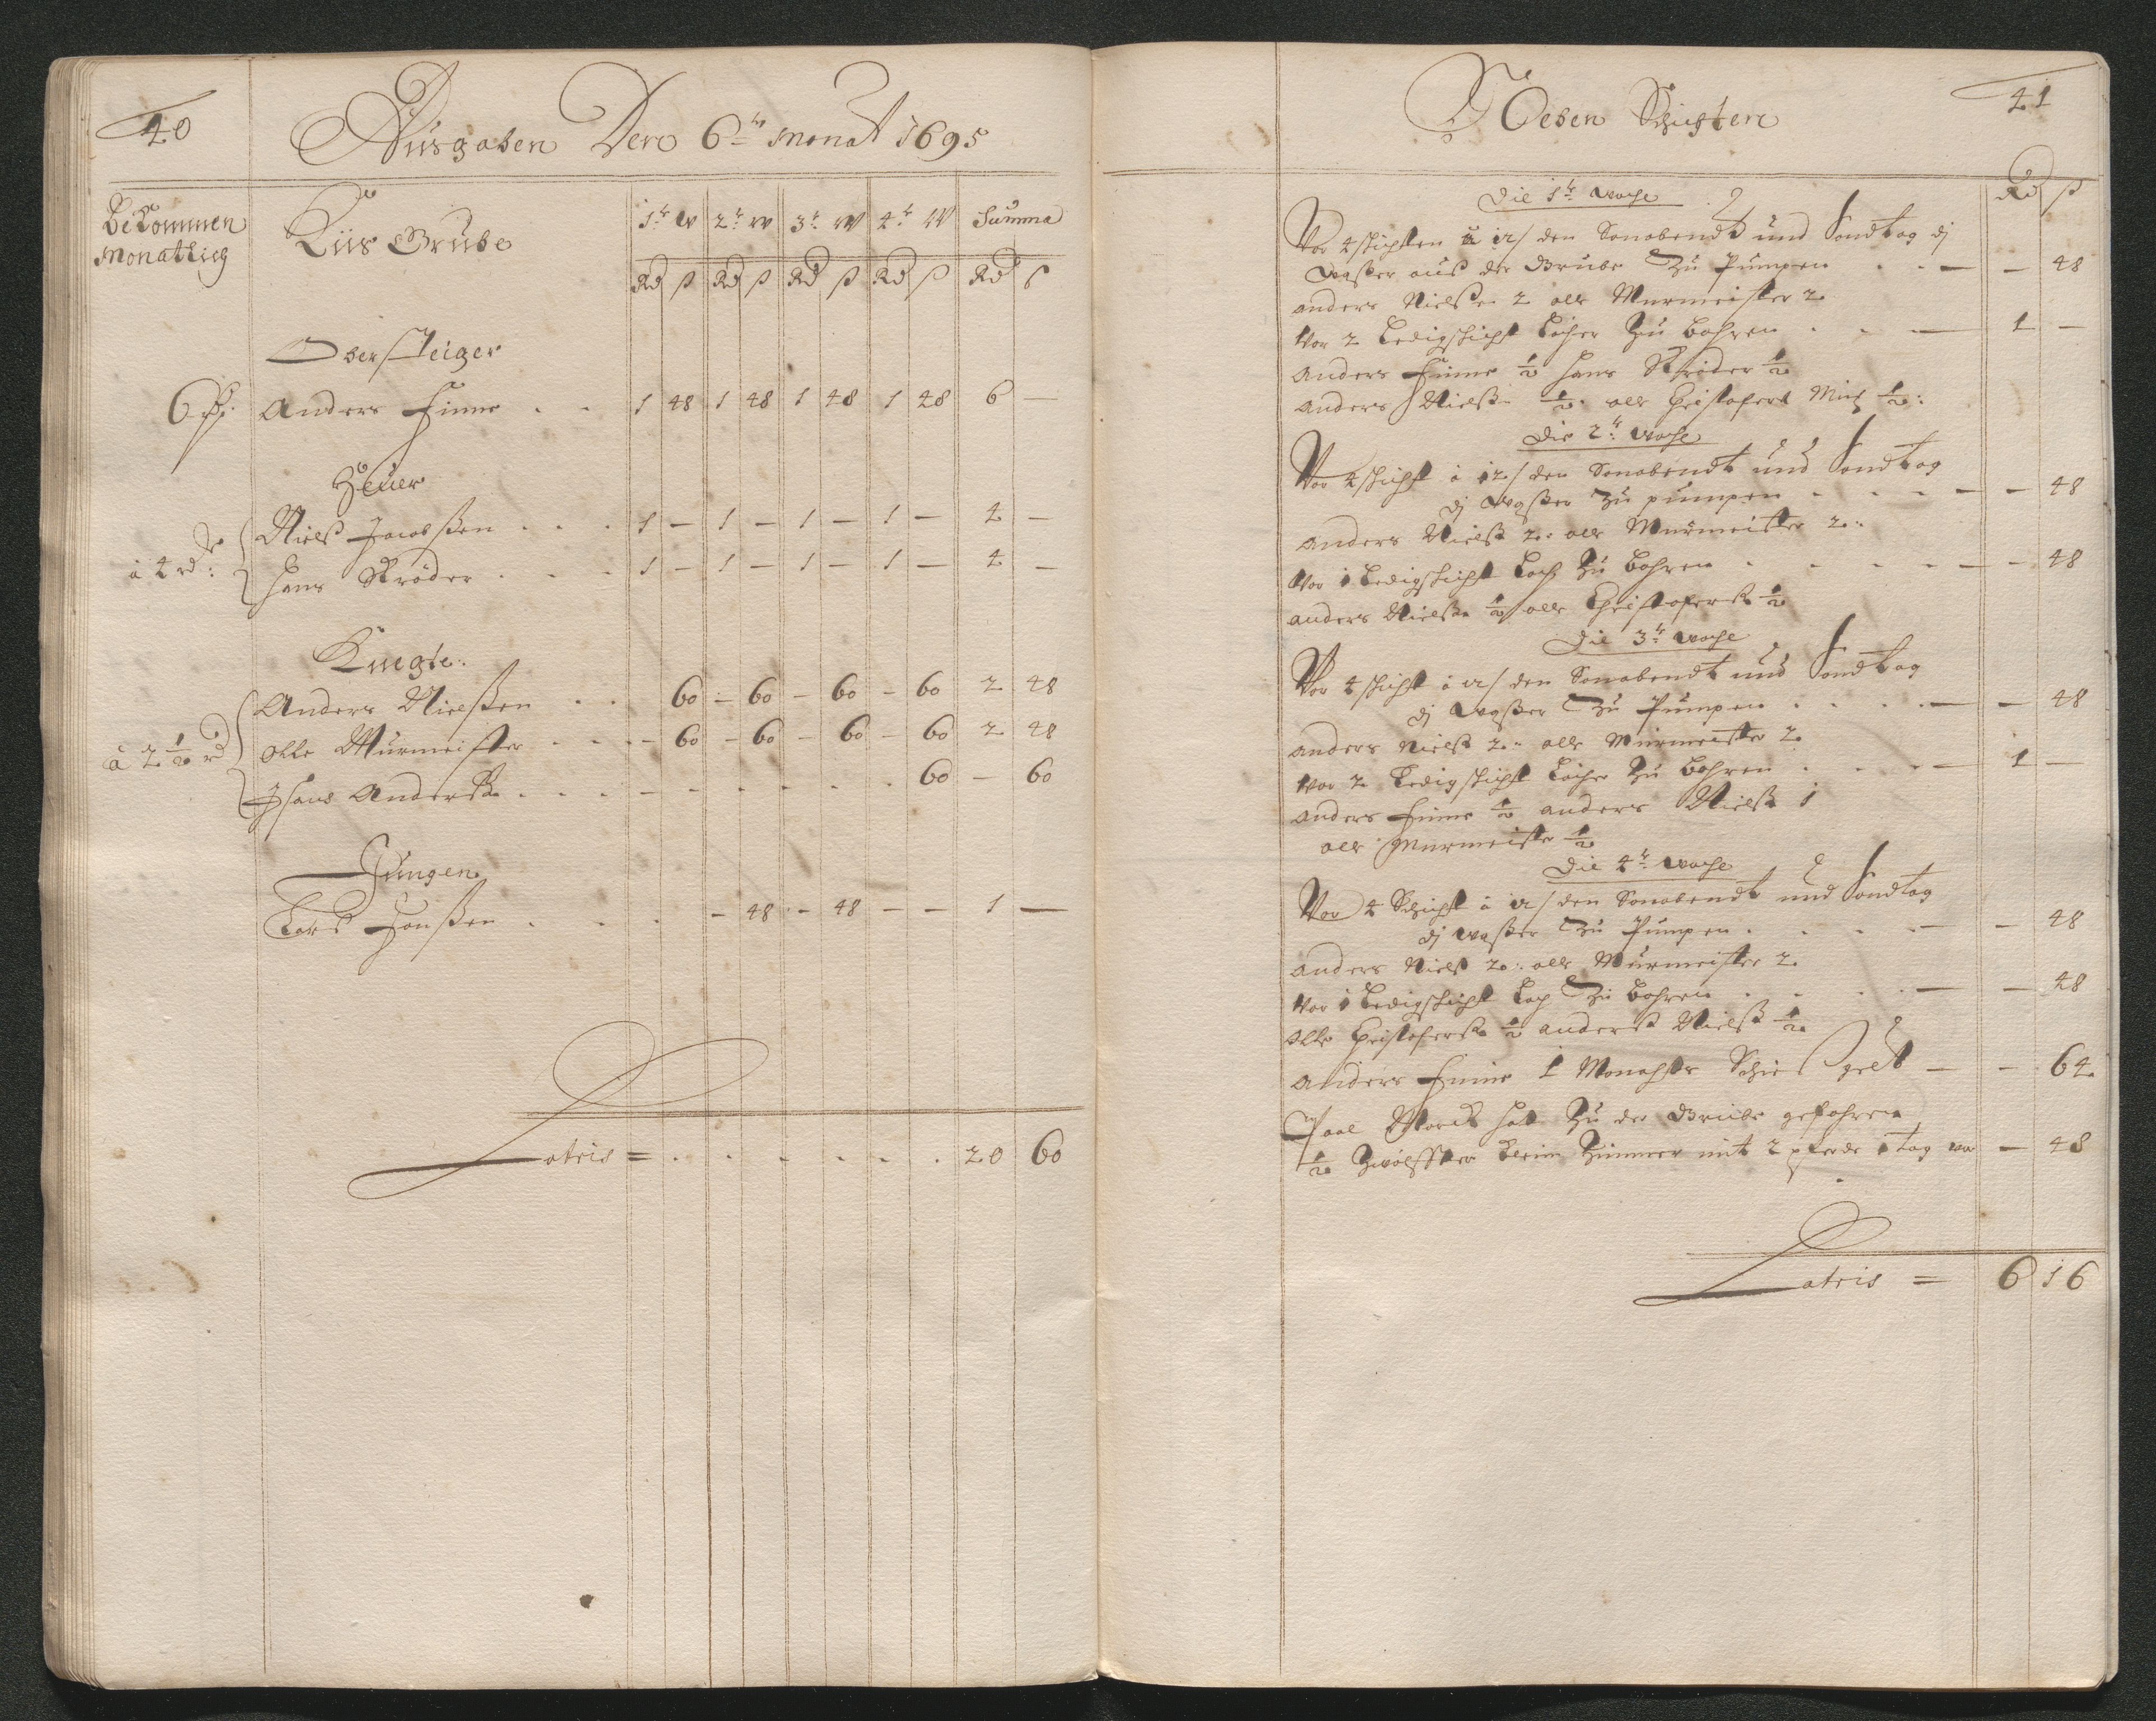 40
Ausgaben Dero 6te Monat 1695
Bekommen
Monatlich
Kiis Grube
1te W 2te W 3te W 4te W Summa
Rd ß Rd ß Rd ß Rd ß Rd ß
Obersteiger
6 Anders Finne . . 1 48 1 48 1 48 1 48 6 —
Heuer
Nielß Jacobßen . . . 1 — 1 — 1 — 1 — 4 —
à 4 rd:
Hans Ströder . . . 1 — 1 — 1 — 1 — 4 —
Knegte:
Anders Nielßen . . 60 — 60 — 60 — 60 2 48
à 2 1/2 rd
Olle Murmeister . . . — 60 — 60 — 60 — 60 2 48
Anderß . . . . . . . . . 60 — 60
Jungen
Larß Hanßen . . . — 48 — 48 — — 1 —
Latris = . . . . . . . 20 60
41
Neben Schichten
Rd ß
Die 1te Woche
Vor 4 schichten à 12 / den Sonabendt und Sondtag dj
Waßer auß der Grube Zu Pumpen . . — — 48
Anders Nielße 2 olle Murmeister 2
Vor 2 Ledigschicht Löcher Zu bohren . . — 1 —
Anders Finne 1/2 Hans Ströder 1/2
Anders Nielß 1/2 olle Christofers 1/2:
Die 2te Woche
Vor 4 schicht à 12 / den Sonabendt und Sondtag
dj Waßer Zu pumpen . . . — — 48
Anders Nielß 2: olle Murmeister 2:
Vor 1 Ledigschicht Loch Zu bohren . . . . — — 48
Anders Nielße 1/2 olle Christoferß 1/2
Die 3te Woche
Vor 4 schicht à 12 / den Sonabendt und Sondtag
dj Waßer Zu Pumpen . . . . — — 48
Anders Nielß 2: olle Murmeister 2
Vor 2 Ledigschicht Löcher Zu bohren . . . — 1 —
Anders Finne 1/2 anders Nielß 1
olle Murmeister 1/2
Die 4te Woche
Vor 4 Schicht à 12 / den Sonabendt und Sondtag
dj Waßer Zu Pumpen . . . . — — 48
Anders Nielß 2: olle Murmeister 2
Vor 1 Ledigschicht Loch Zu bohren . . . . — — 48
Olle Christoferß 1/2 anderß Nielß 1/2
Anders Finne 1 Monahts Schies gelt — — 64
hat Zu der Grube gefahren
1/2 Zwölffter klein Zimmer mit 2 pferde 1 tag vor — 48
Latris = 6 16